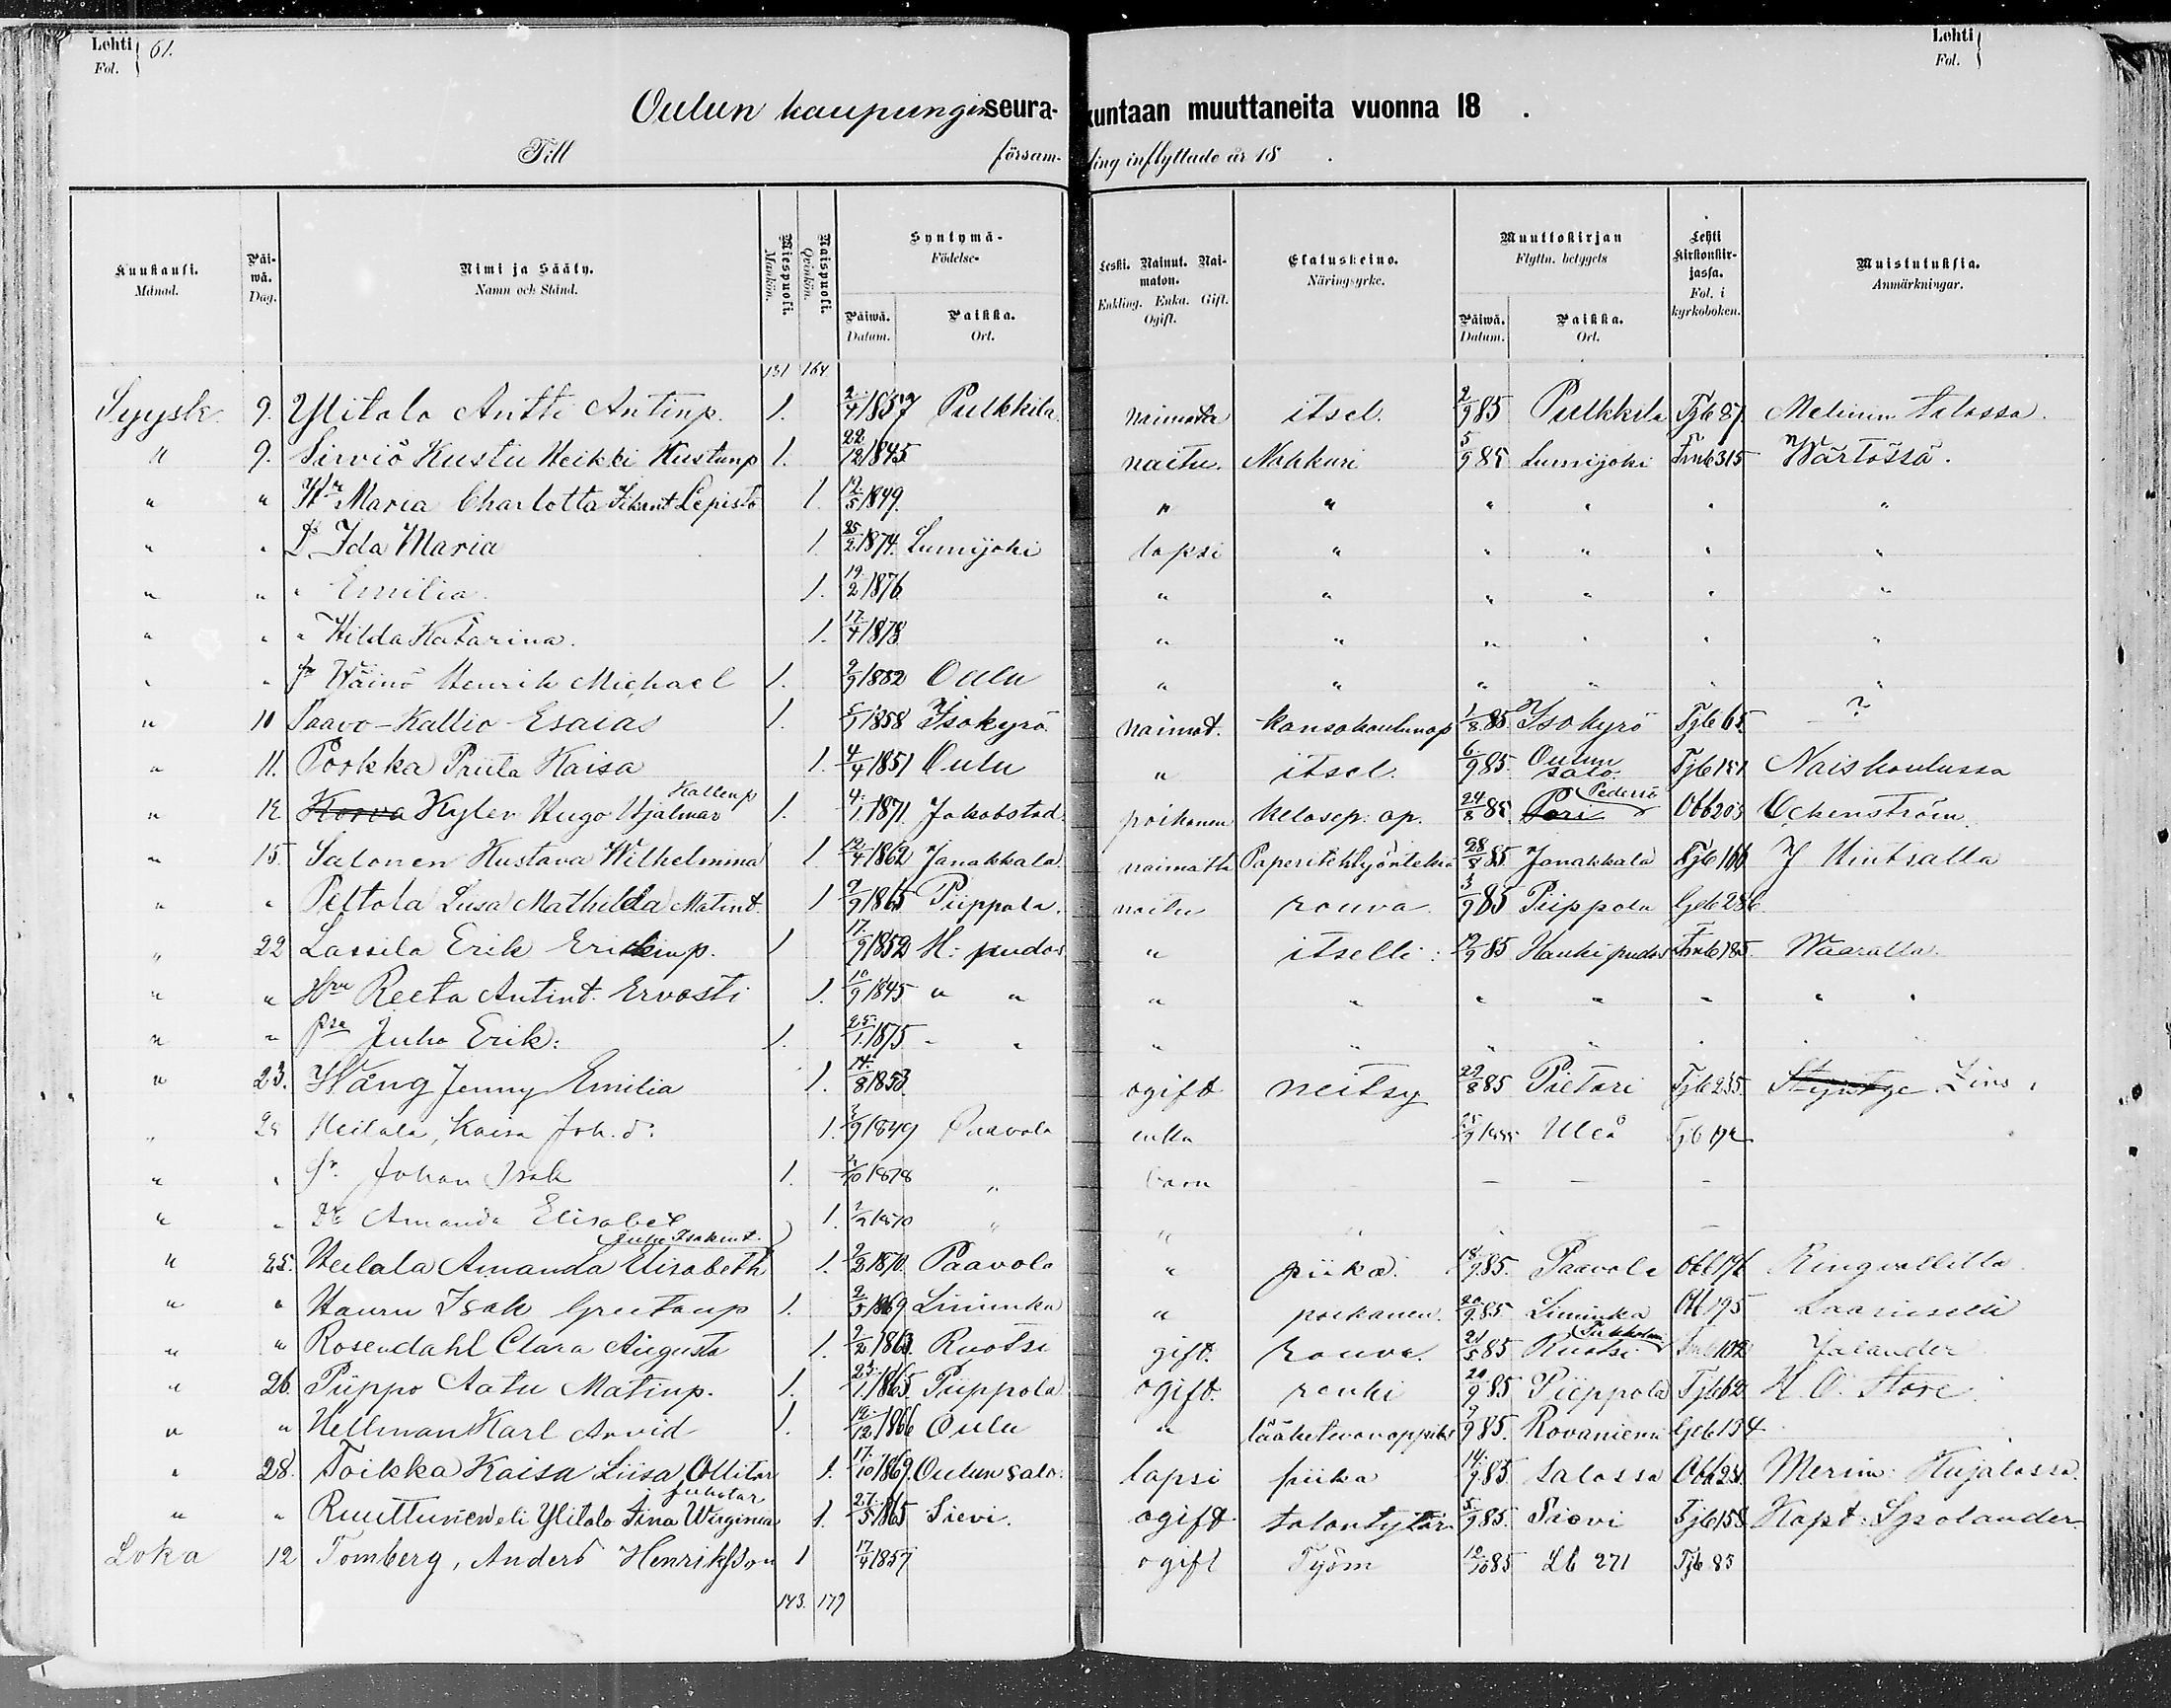 Lehti Fol. 61.
Lehti Fol.
Oulun kaupungin seura- kuntaan muuttaneita vuonna 18 .
Till försam- ling inflyttade år 18 .
Kuukausi. Månad. Päi-wä. Dag. Nimi ja Sääty. Namn och Stånd. Miespuoli. Mankön. Naispuoli. Qvinkön. Syntymä- Födelse- Päiwä. Datum. Paikka. Ort. Leski. Nainut. Nai-maton. Enkling. Enka. Gift. Ogift. Elatuskeino. Näringsyrke. Muuttokirjan Flyttn. betygets Päiwä. Datum. Paikka. Ort. Lehti Kirkonkir-jassa. Fol. i kyrkoboken. Muistutuksia. Anmärkningar.
131 164
Syysk. 9. Ylitalo Antti Antinp. 1. 2/4 1857 Pulkkila naimatn itsel. 2/9 85 Pulkkila Tjb 87. Melinin talossa.
" 9. Sirviö Kustu Heikki Kustanp 1. 22/12 1845 naitu. Nahkuri 5/9 85 Lumijoki 315 Wärtössä.
" " Hr Maria Charlotta Lepistö 1. 19/5 1849. " " " " " "
" " Dr Ida Maria 1. 25/2 1874. Lumijoki lapsi " " " " "
" " " Emilia. 1. 19/2 1876 " " " " " "
" " " Hilda Katarina. 1. 17/4 1878 " " " " " "
" " pr Wäinö Henrik Michael 1. 2/9 1882 Oulu " " " " " "
" 10 Paavo-Kallio Esaias 1. 5/1 1858 Isokyrö. naimat. kansakoulunop 1/8 85 Isokyrö Tjb 65 ?
" 11. Porkka Priita Kaisa 1. 4/4 1851 Oulu " itsel. 6/9 85. Oulun salo. Tjb 151 Naiskoulussa
" 12 Korva Kylen Hugo Hjalmar Kallenp 1. 4/1 1871. Jakobstad. poikanen Kelosep. op. 24/8 85. Pori Pedersö Obb 203 Ockenström.
" 15. Salonen Kustava Wilhelmina 1. 12/4 1862 Janakkala. naimatn 28/8 85 Janakkala Tjb 166 J Hintsalla
" " Peltola Liisa Mathilda Matint. 1 9/9 1865 Piippola. naitu rouva. 3/9 85 Piippola Geb 286.
" 22 Lassila Erik Erkinp. 1 17/9 1852 H: pudas " itselli: 19/9 85 Haukipudas 185. Waaralla.
" " Hru Reeta Antint. Ervasti 1. 10/9 1845 " " " " " " " " "
" " psa Juho Erik: 1. 25/1 1875 " " " " " " " "
" 23. Wång Jenny Emilia 1. 14/8 1853. ogift neitsy 22/8 85 Pietari Tjb 235. Lins.
" 25 Heilala, Kaisa Joh. d: 1. 3/9 1849 Paavola enka 25/9 1885 Uleå Tjb 192
" " Sr. Johan Isak 1. 2/10 1878 " barn – – –
" " Dr Amanda Elisabet 1. 2/2 1870 " " " " –
" 25. Heilala Amanda Elisabeth Juho Isakint. 1. 2/2 1870. Paavola " piika. 18/9 85. Paavola Obb 176 Ringvallilla.
" " Hauru Isak Greetanp 1. 2/5 1869 Liminka " poikanen. 20/9 85. Liminka Obb 195 Laariselli
" " Rosendahl Clara Augusta 1. 2/2 1863. Ruotsi gift. rouva. 21/5 85 Ruotsi Tukholm 102 Jalander
" 26. Piippo Aatu Matinp. 1. 23/1 1865. Piippola ogift. renki 20/9 85 Piippola Tjb 62 H. O. Store.
" " Hellman Karl Arvid 1. 12/12 1866 Oulu " lääketievanoppilas 9/9 85. Rovaniemi Geb 134
" 28. Toikka Kaisa Liisa Ollitar 1. 17/10 1869. Oulunsalo. lapsi piika 14/9 85 salossa Obb 231. Merim: Kujalassa.
" " Ruuttunen eli Ylitalo Tina Wirginia Juhotar 1. 27/5 1865 Sievi. ogift talontytär 5/9 85. Sievi Tjb 158 Kapt: Spolander.
Loka 12 Tomberg, Anders Henriksson 1 17/4 1857 ogift Työm 12/10 85 Lb 271 Tjb 83
143. 179